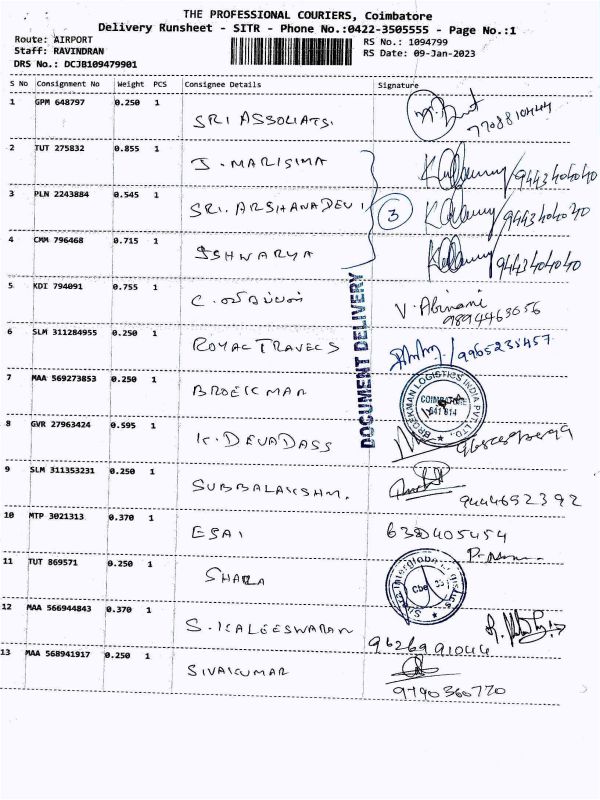 THE PROFESSIONAL COURIERS, Coimbatore
Delivery Runsheet - SITR - Phone No.:0422-3505555 - Page No.:1
Route: AIRPORT
Staff: RAVINDRAN
DRS No.: DCJB109479901
RS No.: 1094799
RS Date: 09-Jan-2023
S No Consignment No Weight PCS Consignee Details Signature
1 GPM 648797 0.250 1 SRI ASSOLIATS. 7708810444
2 TUT 275832 0.855 1 J. MARISIMA 9443404040
3 PLN 2243884 0.545 1 SRI. ARSHANADEVI 3 9443404040
4 CMM 796468 0.715 1 ISHWARYA 9443404040
5 KDI 794091 0.755 1 V. Abinami 9894463056
DOCUMENT DELIVERY
6 SLM 311284955 0.250 1 ROYAL TRAVELS 9965235457
7 MAA 569273853 0.250 1 BROEKMAN
BROEKMAN LOGISTICS INDIA PVT. LTD. COIMBATORE 641 014
8 GVR 27963424 0.595 1 K. DEVADASS
9 SLM 311353231 0.250 1 SUBBALAKSHM. 9444692392
10 MTP 3021313 0.370 1 ESAI 6380405454
11 TUT 869571 0.250 1 Cbe
12 MAA 566944843 0.370 1 S. KALEESWARAN 9626991044
13 MAA 568941917 0.250 1 SIVAKUMAR 9790360770